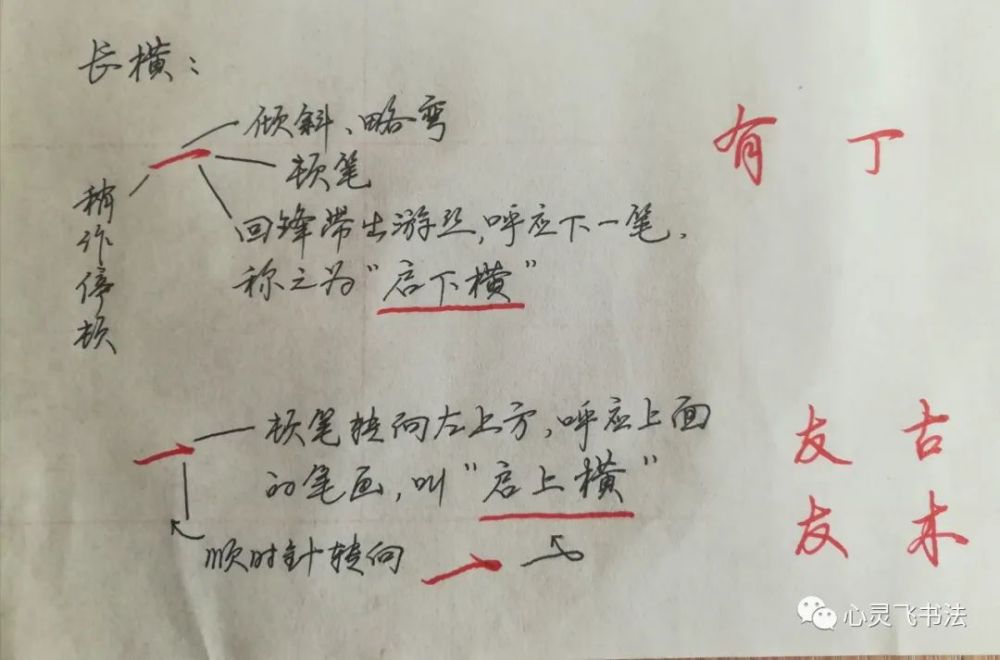 长横：
倾斜、略弯
顿笔
稍作停顿
回锋带出游丝，呼应下一笔，
称之为“启下横”
有 丁
顿笔转向左上方，呼应上面
的笔画，叫“启上横”
顺时针转向
友 古
友 木
心灵飞书法